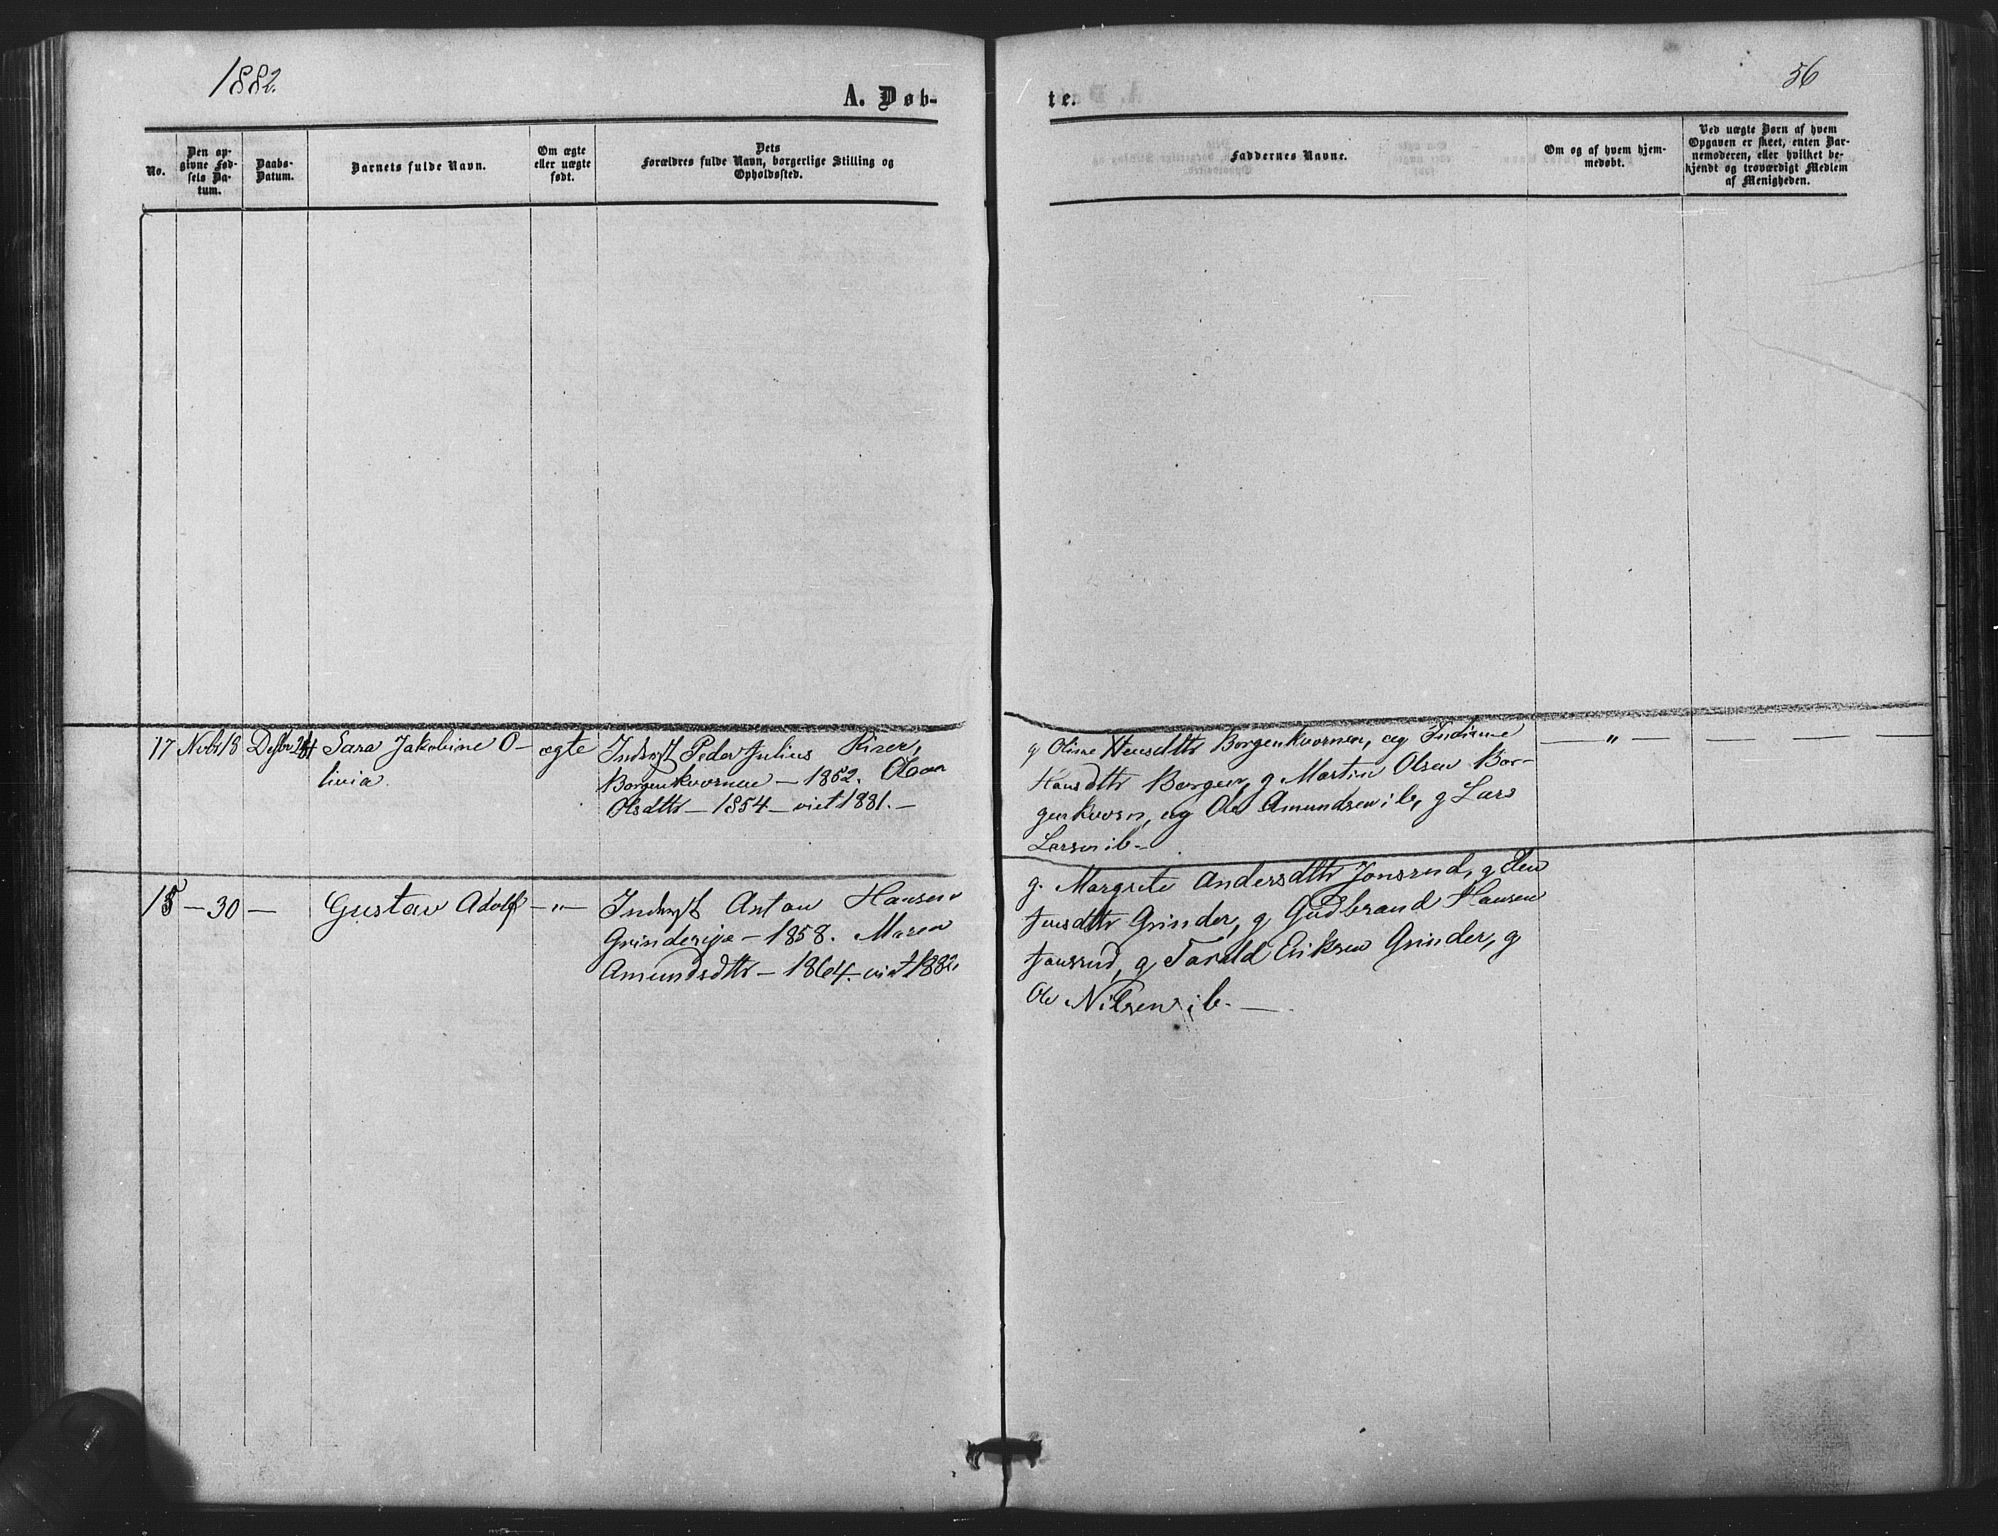 1882.
A. Døb-
te.
56
No.
Den op-
givne Fød-
sels Da-
tum.
Daabs-
Datum.
Barnets fulde Navn.
Om ægte
eller uægte
født.
Dets
Forældres fulde Navn, borgerlige Stilling og
Opholdssted.
Faddernes Navne.
Om og af hvem hjem-
medøbt.
Ved uægte Børn af hvem
Opgaven er skeet, enten Bar-
nemoderen, eller hvilket be-
kjendt og troværdigt Medlem
af Menigheden.
17 Nvbr 18 Desbr 24 Sara Jakobine O- ægte Indryst Peder Julius
livia.
Borgenkvernen — 1852.
Olsdttr — 1854 — viet 1881. —
g Oline Hansdttr Borgenkvernen, ug Indiane
Hansdttr Borgen, g Martin Olsen Bor-
genkvern, ug Ole Amundsen ib, g Lars
Larsen ib. —
— " —
18 — 30 — Gustav Adolf — " — Indryst Anton Hansen
Grindereje — 1858. Maren
Amundsdttr — 1864 — viet 1882.
g. Margrete Andersdttr Jonsrud, g
Jensdttr Grinder, g Gudbrand Hansen
Jonsrud, g Eriksen Grinder, g
Ole Nilsen ib. —